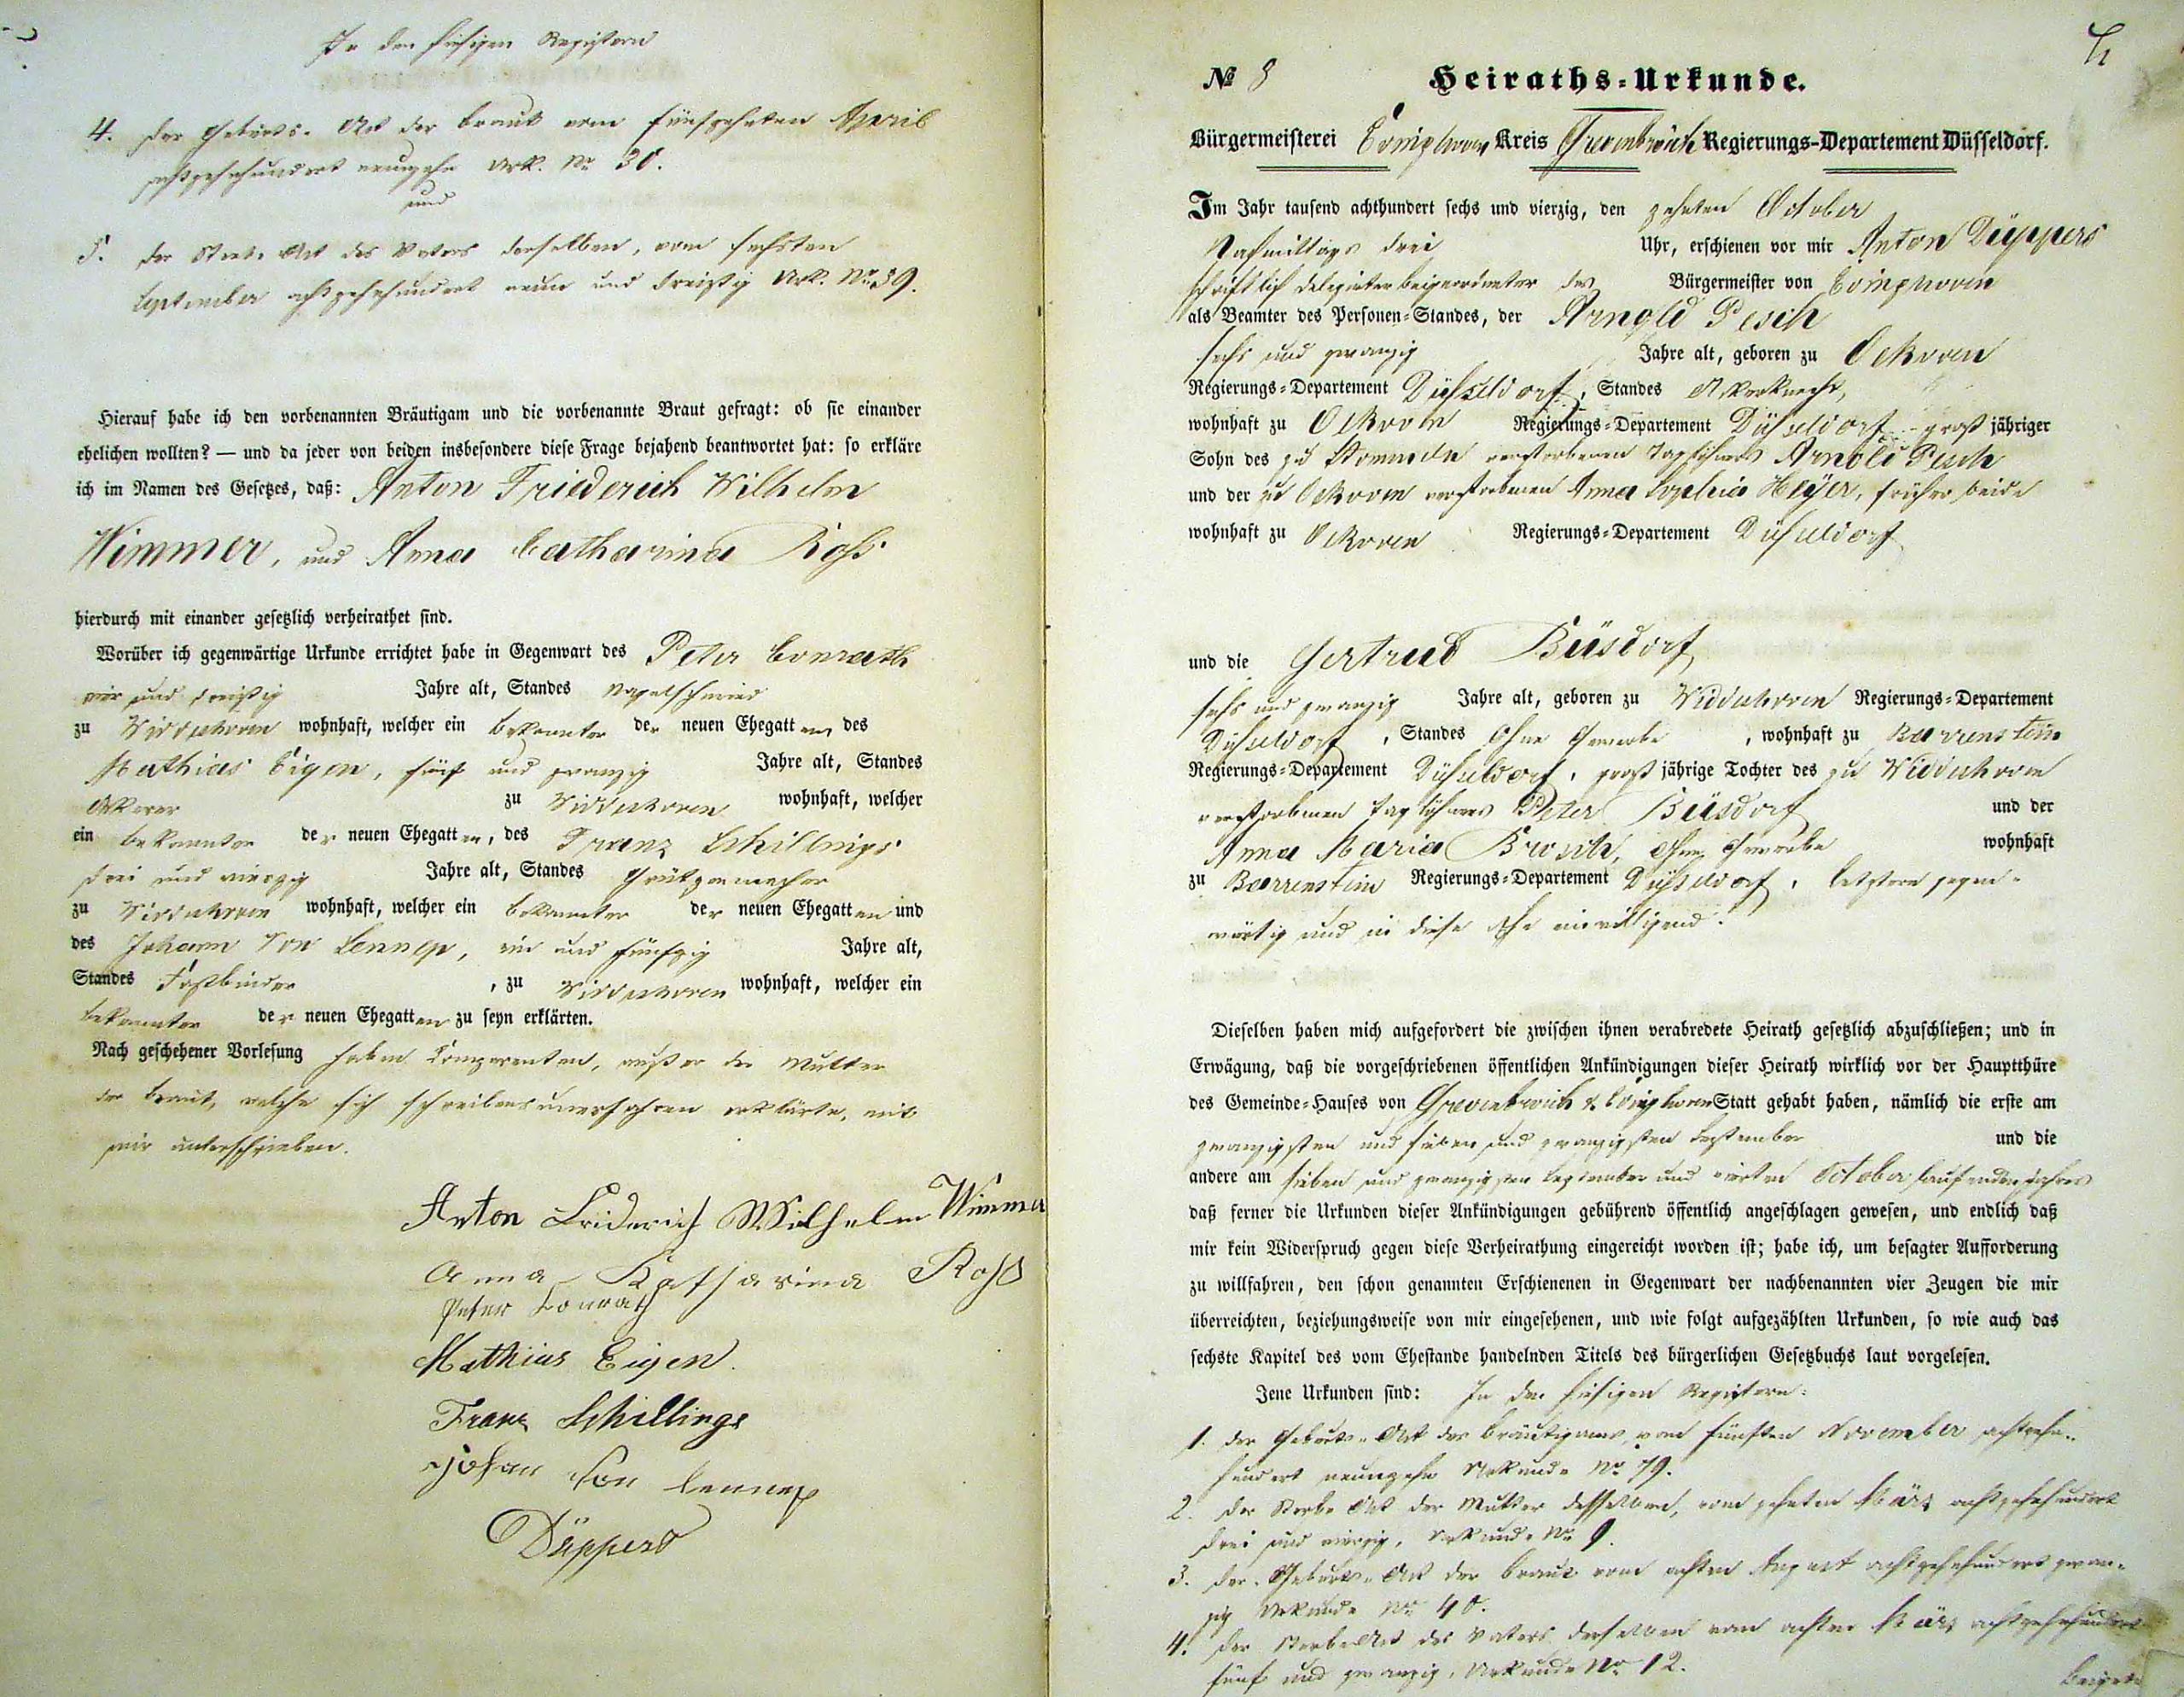 In den hiesigen Registern
4. der Geburts-Akt der Braut vom fünfzehnten April
achtzehnhundert neunzehn Urk. No 30.
und
5. der Sterbe Akt des Vaters derselben, vom sechsten
September achtzehnhundert neun und dreißig Urk. No 39.
Hierauf habe ich den vorbenannten Bräutigam und die vorbenannte Braut gefragt: ob sie einander
ehelichen wollten? — und da jeder von beiden insbesondere diese Frage bejahend beantwortet hat: so erkläre
ich im Namen des Gesetzes, daß: Anton Friederich Wilhelm
Wimmer, und Anna Catharina Roß
hierdurch mit einander gesetzlich verheirathet sind.
Worüber ich gegenwärtige Urkunde errichtet habe in Gegenwart des Peter Conrath
vier und dreißig Jahre alt, Standes Nagelschmied
zu Widdeshoven wohnhaft, welcher ein Bekannter der neuen Ehegatten, des
Mathias Eigen, fünf und zwanzig Jahre alt, Standes
Ackerer zu Widdeshoven wohnhaft, welcher
ein bekannter der neuen Ehegatten, des Franz Schillings
drei und vierzig Jahre alt, Standes Grützemacher
zu Widdeshoven wohnhaft, welcher ein bekannter der neuen Ehegatten und
des Johann Von Lennep, ein und fünfzig Jahre alt,
Standes Faßbinder, zu Widdeshoven wohnhaft, welcher ein
bekannter der neuen Ehegatten zu seyn erklärten.
Nach geschehener Vorlesung haben Comparenten, außer der Mutter
der Braut, welche sich schreibensunerfahren erklärte, mit
mir unterschrieben.
Anton Friderich Wilhelm Wimmer
Anna Katharina Roß
Peter Conrath
Mathias Eigen.
Franz Schillings
Johan fon lennep
Düppers
No 8 Heiraths-Urkunde.
Bürgermeisterei Evinghoven Kreis Grevenbroich Regierungs-Departement Düsseldorf.
Im Jahr tausend achthundert sechs und vierzig, den zehnten October
Nachmittags drei Uhr, erschienen vor mir Anton Düppers
schriftlich delegirter beigeordneter des Bürgermeister von Evinghoven
als Beamter des Personen-Standes, der Arnold Pesch
sechs und zwanzig Jahre alt, geboren zu Oekoven
Regierungs-Departement Düsseldorf, Standes Ackerknecht,
wohnhaft zu Oekoven Regierungs-Departement Düsseldorf großjähriger
Sohn des zu verstorbenen Tagelöhners Arnold Pesch
und der zu Oekoven verstorbenen Anna Sophia Heyer, früher beide
wohnhaft zu Oekoven Regierungs-Departement Düsseldorf
und die Gertrud Büsdorf
sechs und zwanzig Jahre alt, geboren zu Widdeshoven Regierungs-Departement
Düsseldorf, Standes Ohne Gewerbe, wohnhaft zu Barrenstein
Regierungs-Departement Düsseldorf, großjährige Tochter des zu Widdeshoven
verstorbenen Taglöhners Peter Büsdorf und der
Anna Maria Brosch, ohne Gewerbe wohnhaft
zu Barrenstein Regierungs-Departement Düsseldorf, letztere gegen-
wärtig und in diese Ehe einwilligend.
Dieselben haben mich aufgefordert die zwischen ihnen verabredete Heirath gesetzlich abzuschließen; und in
Erwägung, daß die vorgeschriebenen öffentlichen Ankündigungen dieser Heirath wirklich vor der Hauptthüre
des Gemeinde-Hauses von Grevenbroich & Evinghoven Statt gehabt haben, nämlich die erste am
zwanzigsten und sieben und zwanzigsten September und die
andere am sieben und zwanzigsten September und vierten October laufenden Jahres
daß ferner die Urkunden dieser Ankündigungen gebührend öffentlich angeschlagen gewesen, und endlich daß
mir kein Widerspruch gegen diese Verheirathung eingereicht worden ist; habe ich, um besagter Aufforderung
zu willfahren, den schon genannten Erschienenen in Gegenwart der nachbenannten vier Zeugen die mir
überreichten, beziehungsweise von mir eingesehenen, und wie folgt aufgezählten Urkunden, so wie auch das
sechste Kapitel des vom Ehestande handelnden Titels des bürgerlichen Gesetzbuchs laut vorgelesen.
Jene Urkunden sind: In den hiesigen Registern:
1. der Geburts-Akt des Bräutigams, vom fünften November achtzehn-
hundert neunzehn Urkunde No 79.
2. der Sterbe Akt der Mutter desselben, vom zehnten März achtzehnhundert
drei und vierzig, Urkunde No 9.
3. der Geburts-Akt der Braut vom achten August achtzehnhundert zwan-
zig Urkunde No 40.
4. der Sterbe Akt des Vaters derselben vom achten März achtzehnhundert
fünf und zwanzig, Urkunde No 12.